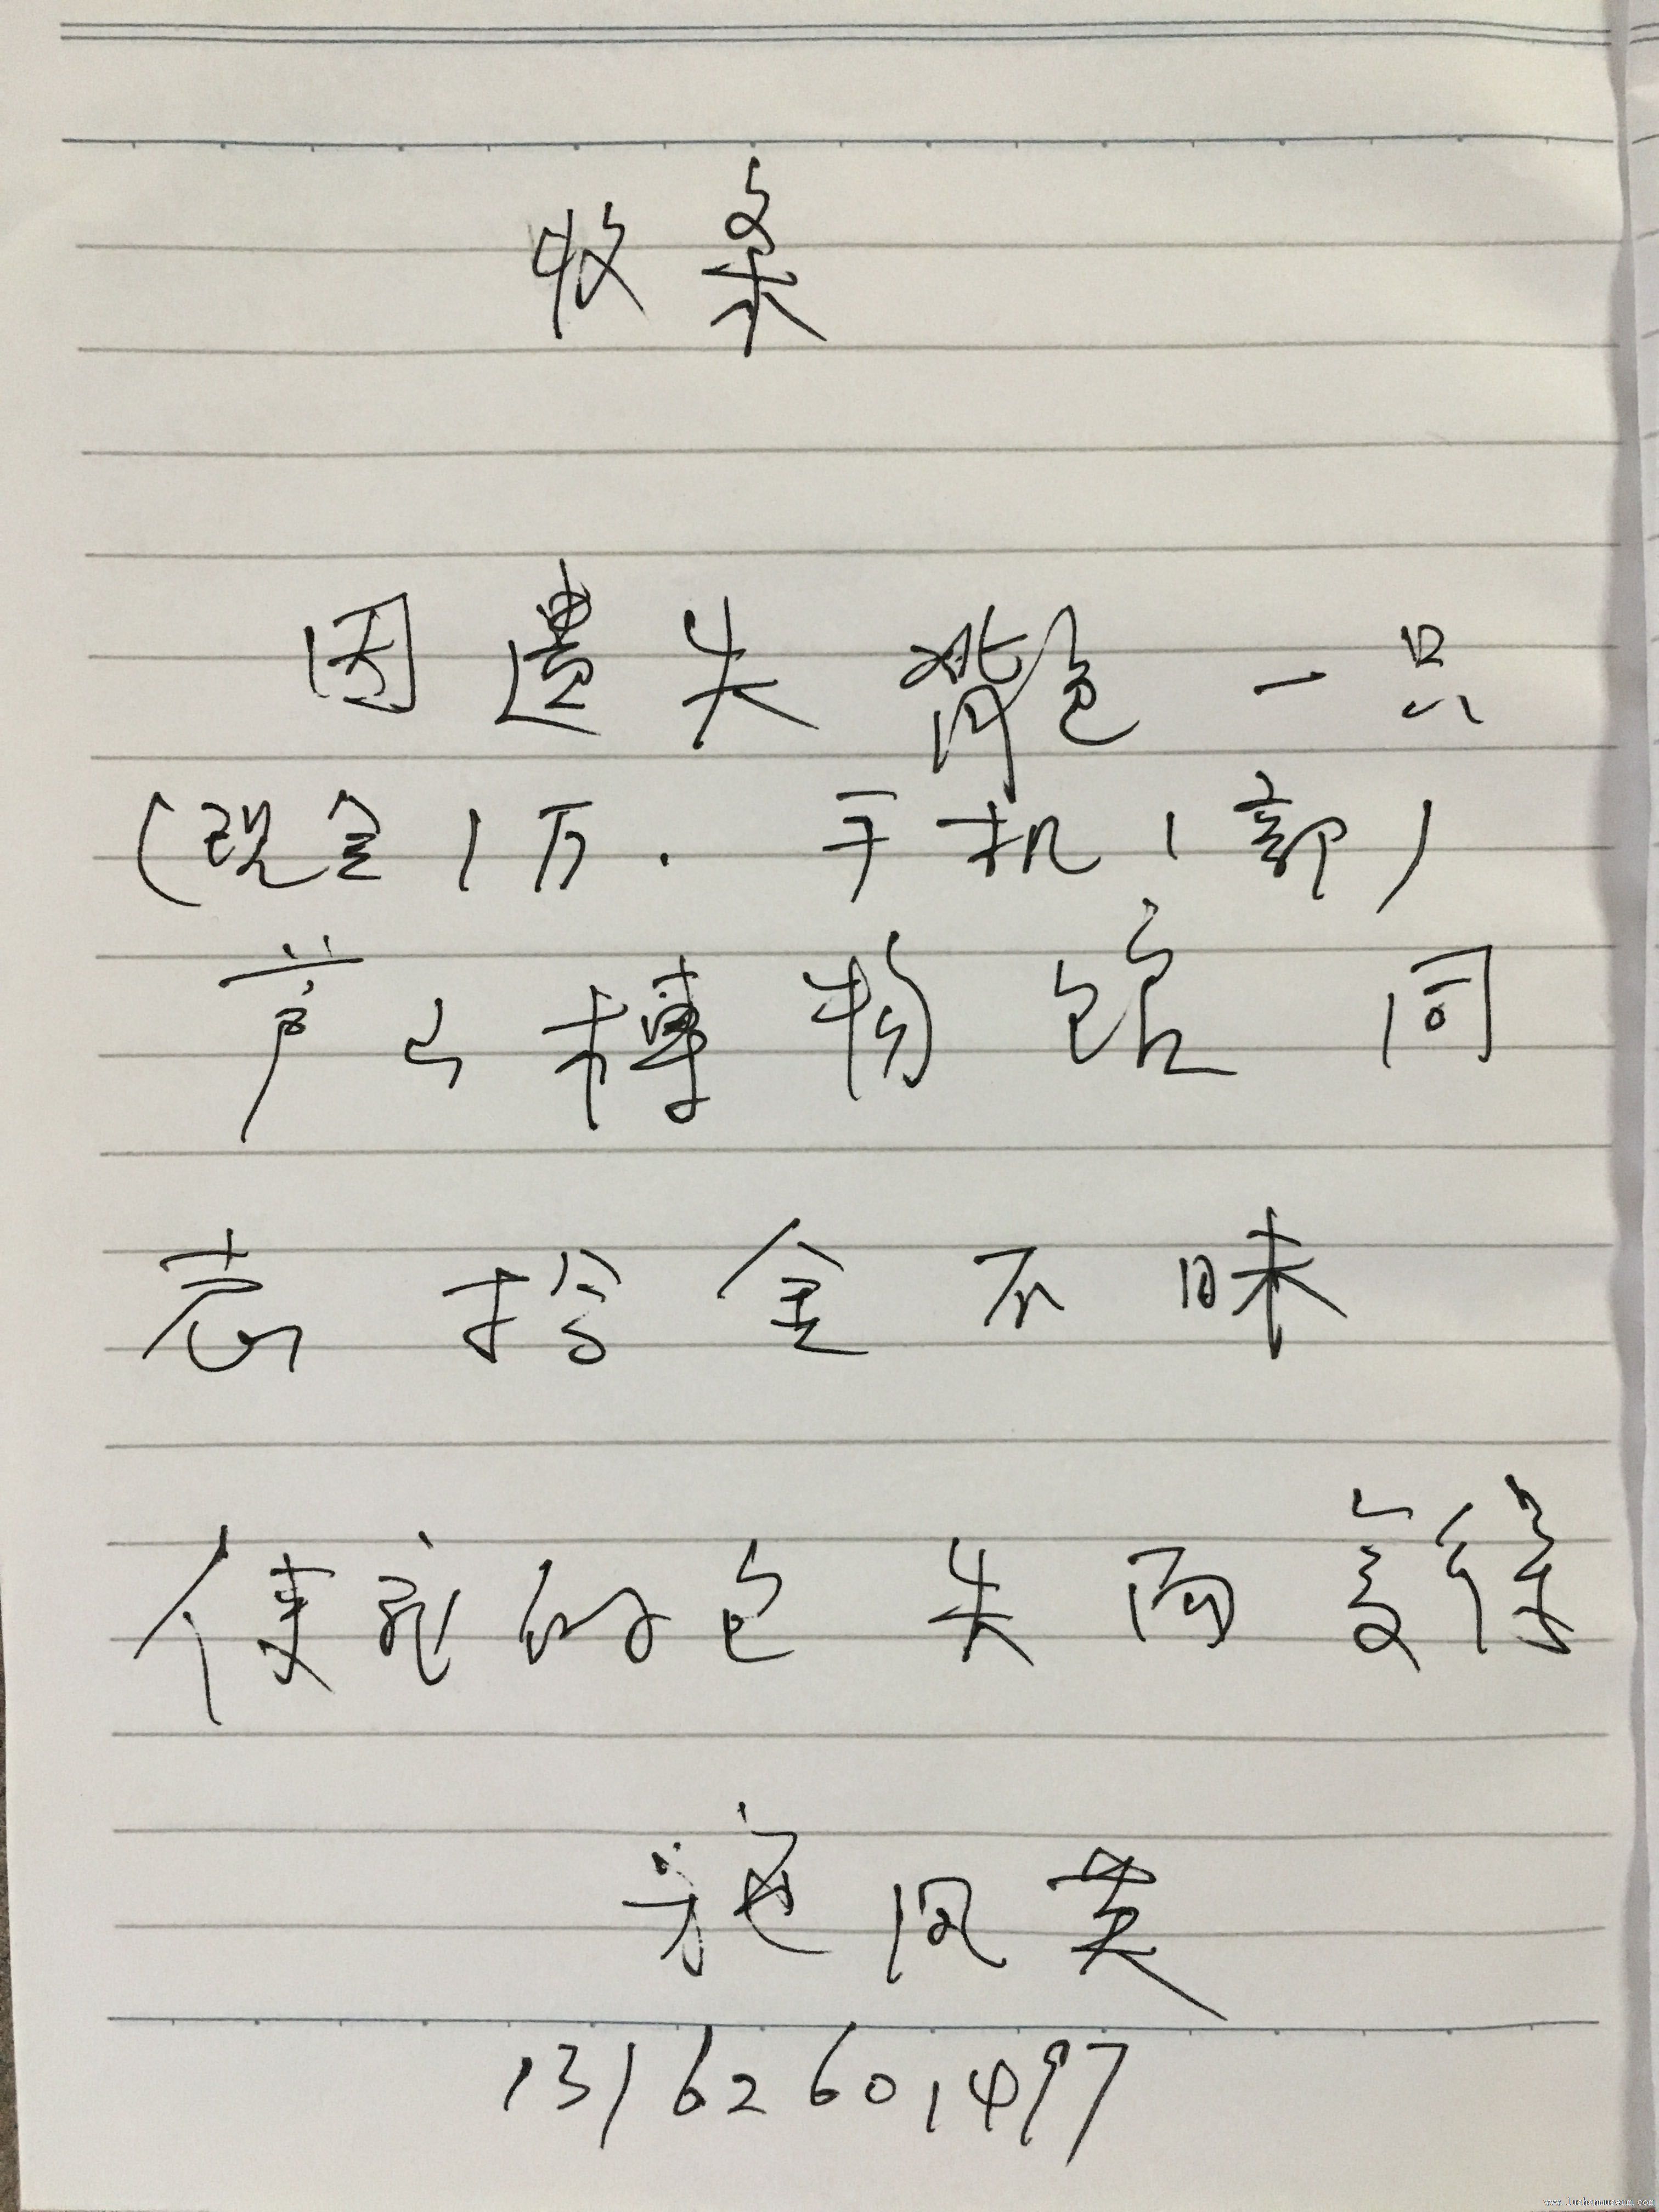 收条
因遗失背包一只
(现金1万.手机1部)
芦山博物馆同
志拾金不昧
使我的包失而复得
施凤英
13162601497